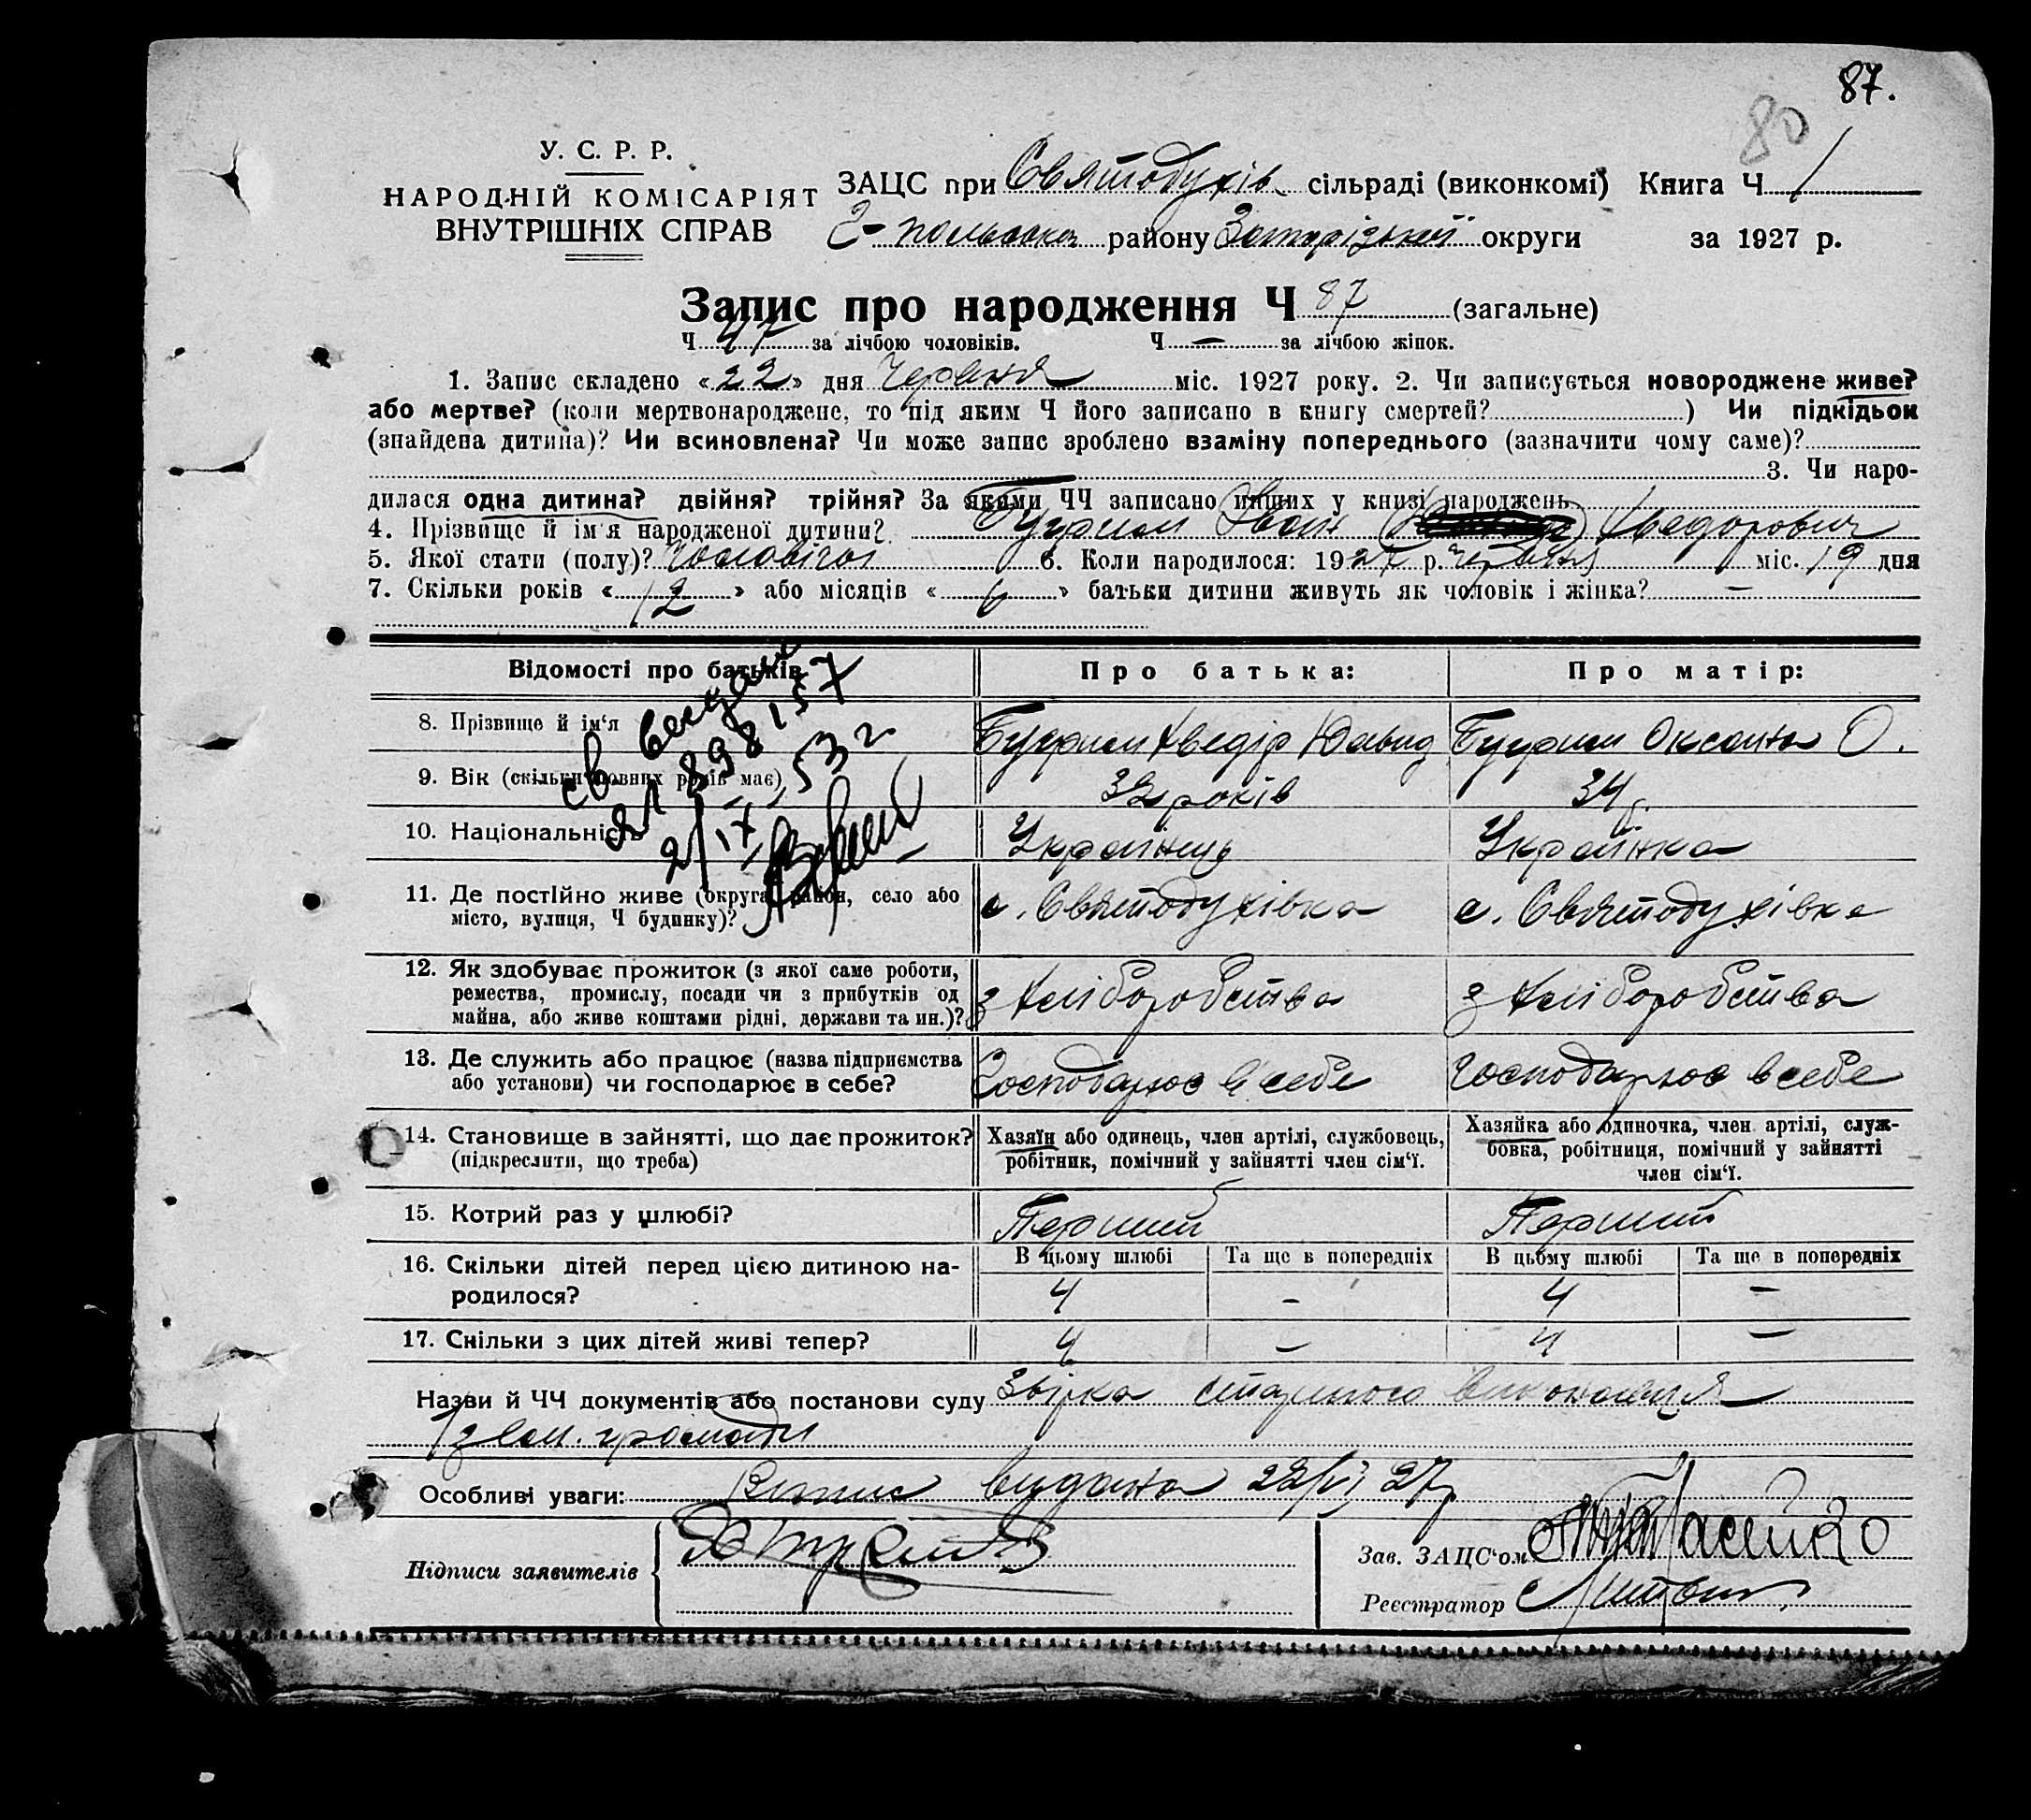 87.
80
У. С. Р. Р.
НАРОДНІЙ КОМІСАРІЯТ
ВНУТРІШНІХ СПРАВ
ЗАЦС при Святодухів. сільраді (виконкомі) Книга Ч 1
Г-польська району Запорізької округи за 1927 р.
Запис про народження Ч 87 (загальне)
Ч 47 за лічбою чоловіків. Ч — за лічбою жінок.
1. Запис складено «22» дня Червня міс. 1927 року. 2. Чи записується новороджене живе?
або мертве? (коли мертвонароджене, то під яким Ч його записано в книгу смертей? ) Чи підкідьок
(знайдена дитина)? Чи всиновлена? Чи може запис зроблено взаміну попереднього (зазначити чому саме)?
3. Чи наро-
дилася одна дитина? двійня? трійня? За якими ЧЧ записано инших у книзі народжень
4. Прізвище й ім'я народженої дитини? Іван Хведорович
5. Якої стати (полу)? Чоловіча 6. Коли народилося: 1927 р. червня міс. 19 дня
7. Скільки років «12» або місяців «6» батьки дитини живуть як чоловік і жінка? —
Відомості про батьків Про батька: Про матір:
8. Прізвище й ім'я Хведір Давид Оксана О.
9. Вік (скільки повних років має) 32 років 34 р.
10. Національність Українець Українка
11. Де постійно живе (округа, район, село або
місто, вулиця, Ч будинку)? с. Святодухівка с. Святодухівка
12. Як здобуває прожиток (з якої саме роботи,
ремества, промислу, посади чи з прибутків од
майна, або живе коштами рідні, держави та ин.)? з хліборобства з хліборобства
13. Де служить або працює (назва підприємства
або установи) чи господарює в себе? Господарює в себе Господарює в себе
14. Становище в зайнятті, що дає прожиток?
(підкреслити, що треба)
Хазяїн або одинець, член артілі, службовець,
робітник, помічний у зайнятті член сім'ї.
Хазяйка або одиночка, член артілі, служ-
бовка, робітниця, помічний у зайнятті
член сім'ї.
15. Котрий раз у шлюбі? Перший Перший
В цьому шлюбі Та ще в попередніх В цьому шлюбі Та ще в попередніх
16. Скільки дітей перед цією дитиною на-
родилося? 4 – 4 –
17. Скільки з цих дітей живі тепер? 4 – 4 –
Назви й ЧЧ документів або постанови суду Звірка
громади
Особливі уваги: Випис видана 22/VI 27р
Підписи заявителів
Зав. ЗАЦС'ом
Реєстратор
св
898157
2/IX 53 г